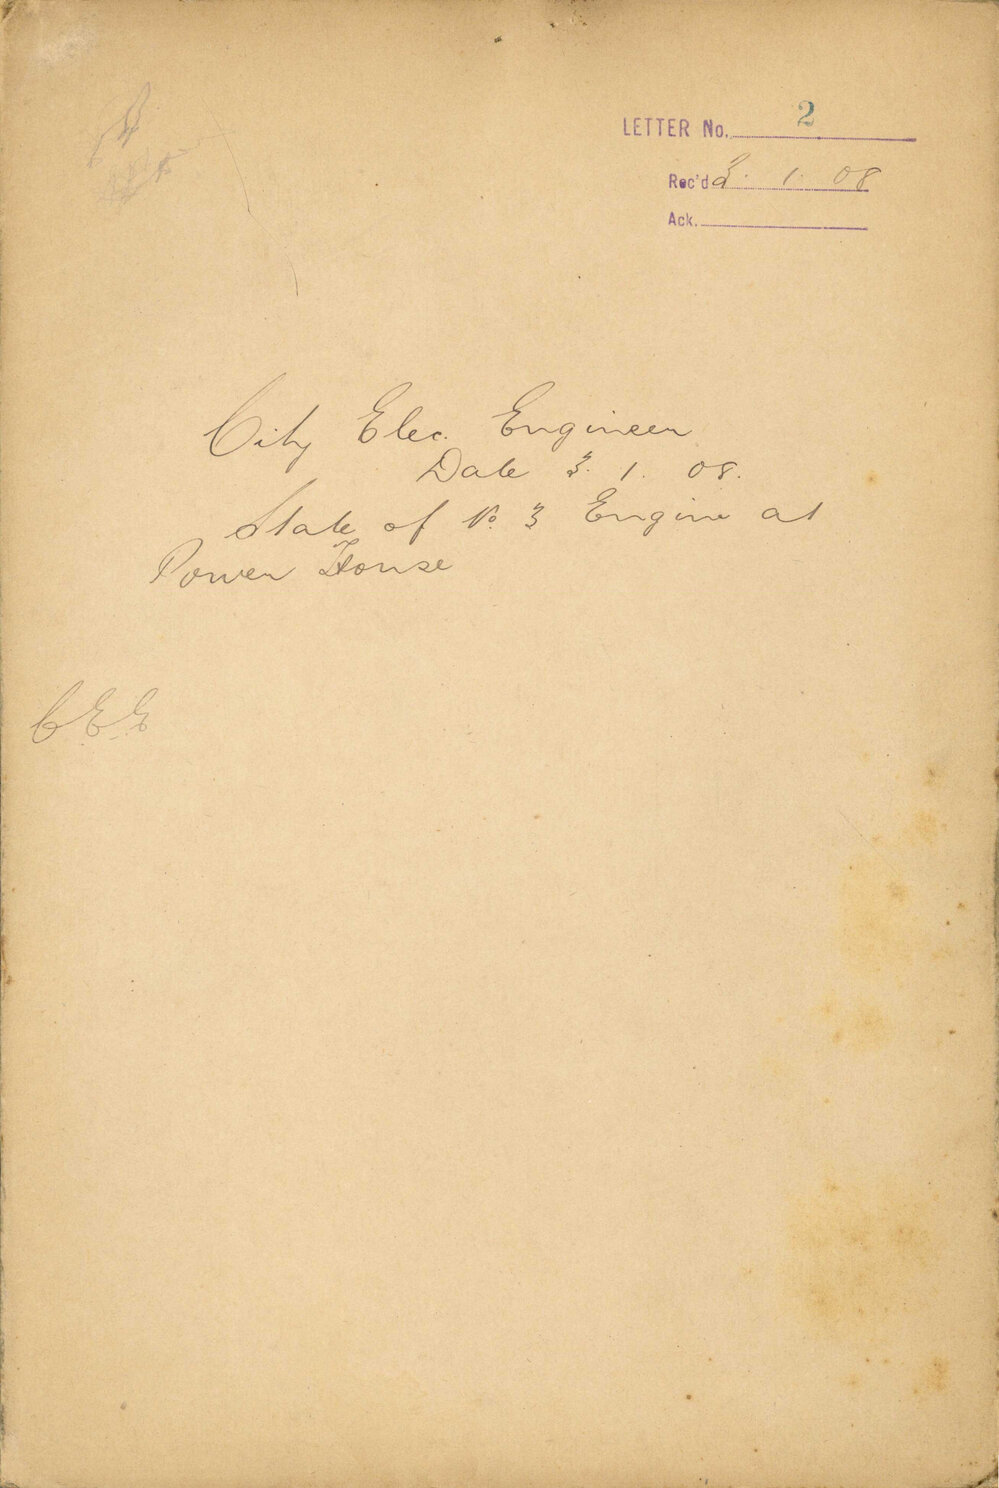 LETTER No. 2
Rec'd 3. 1. 08
Ack.
City Elec. Engineer
Date 3. 1. 08.
State of No. 3 Engine at
Power House
C.E.E